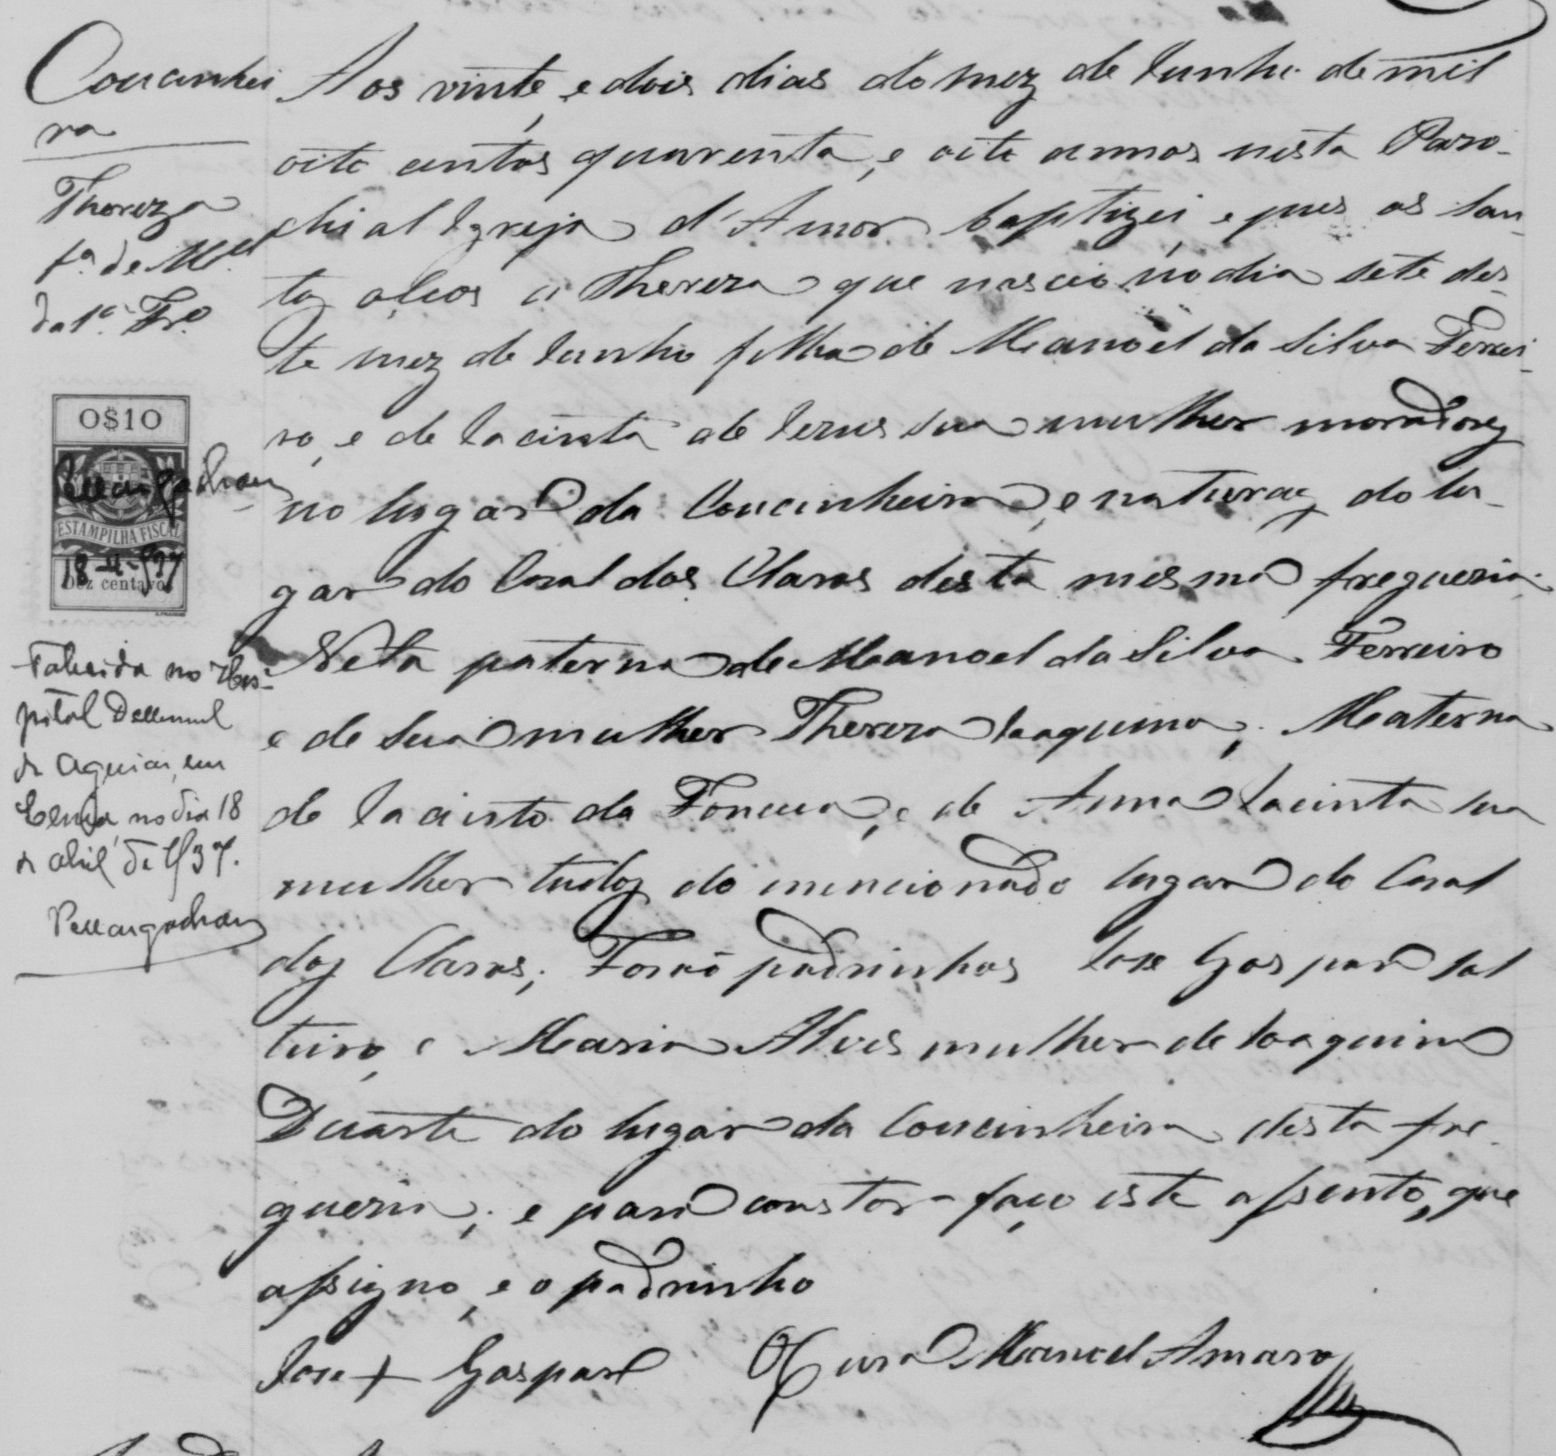 Coucinhei
ra
Thereza
fª de Mel
da Sª Frº
0$10
ESTAMPILHA FISCAL
18-4-937
Dez centavos
Falecida no Hos-
pital D. Manuel
de Aguiar, em
Leiria, no dia 18
de abril de 1937.
Aos vinte, e dois dias do mez de Junho de mil
oito centos quarenta, e oito annos nesta Paro-
chial Igreja d'Amor baptizei, e pus os San-
tos oleos a Thereza que nasceo no dia sete des-
te mez de Junho filha de Manoel da Silva Ferrei-
ro, e de Jacinta de Jezus sua mulher moradores
no lugar da Coucinheira, e naturaes do lu-
gar do Casal dos Claros desta mesma freguezia.
Neta paterna de Manoel da Silva Ferreiro
e de sua mulher Thereza Joaquina; Materna
de Jacinto da Fonceca, e de Anna Jacinta sua
mulher todos do mencionado lugar do Casal
dos Claros; Forão padrinhos Jose Gaspar sol
teiro, e Maria Alves mulher de Joaquim
Duarte do lugar da Coucinheira desta fre-
guezia; e para constar faço este assento, que
assigno, e o padrinho
Jose + Gaspar O Cura Manoel Amaro